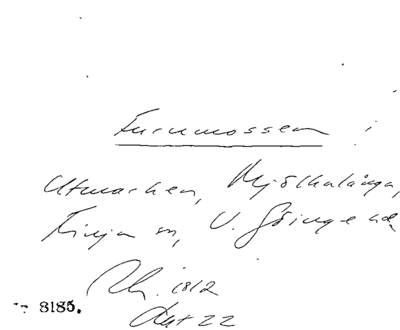 Furumossen i
Utmarken, Mjölkalånga,
Finja sn, V. Göinge hd.
Rk. 1812
Lut 22
8185.